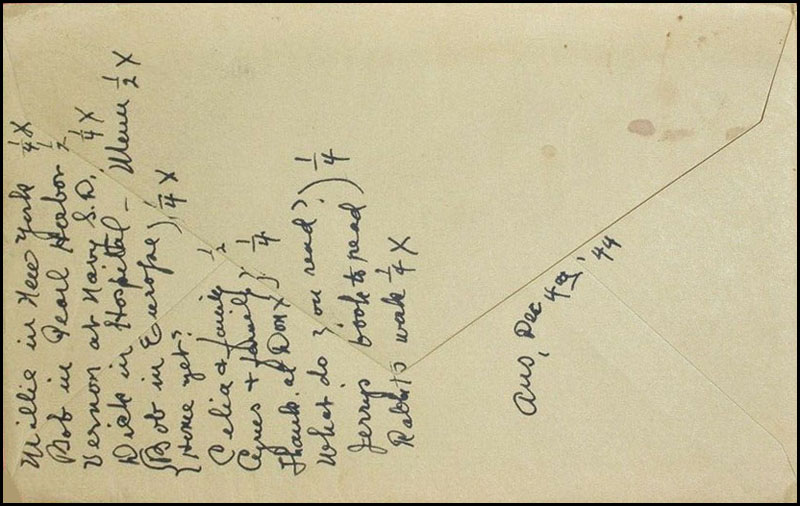 Millie in New York 1/4 X
Bob in Pearl Harbor 1/2
Vernon at Navy S.D. 1/4 X
Dick in Hospital – 1/2 X
{Bob in Europe) 1/4 X
{Home yet?
Celia & family 1/2
Agnes & family } 1/4
Thank. at Don X
What do you read?) 1/4
Jerrys book to read)
Rabbits 1/4 X
Ans, Dec 4, '44